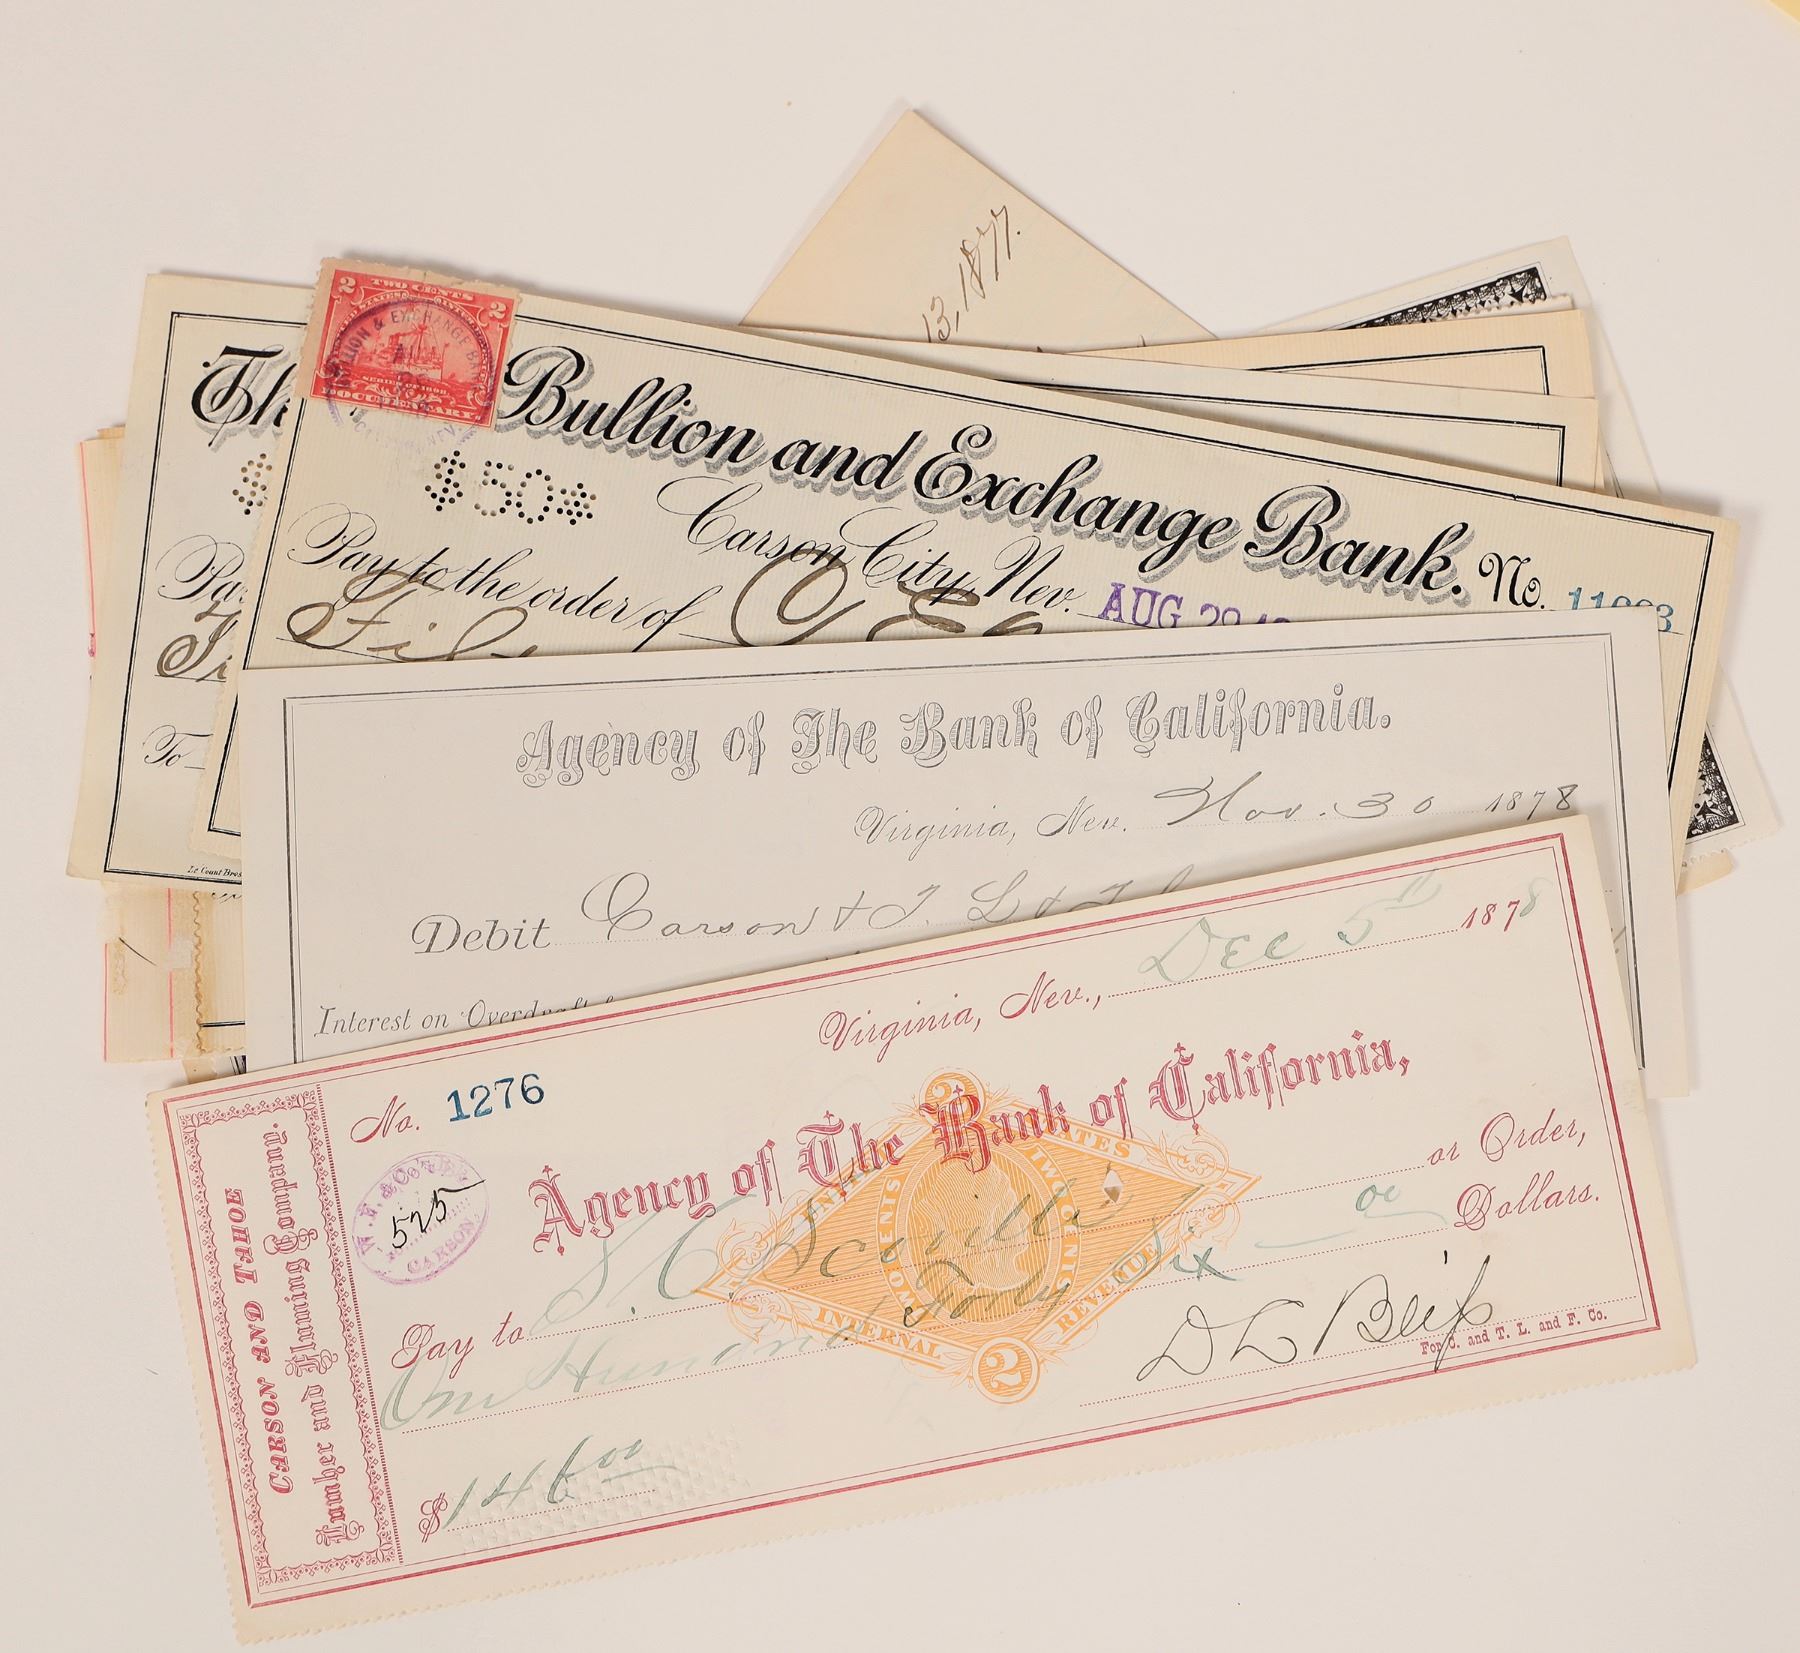 13, 1877.
Th
$
Pa
To
Le Count Bros
2 TWO CENTS 2
SERIES OF 1898
DOCUMENTARY
BULLION & EXCHANGE BANK
CARSON, NEV.
Bullion and Exchange Bank.
$50
Carson City, Nev. AUG 29
No.
Pay to the order of
Agency of The Bank of California.
Virginia, Nev. Nov. 30 1878
Debit Carson & T. L & F
Interest on Overdraft
Virginia, Nev., Dec 5th 1878
No. 1276
Agency of The Bank of California,
CARSON AND TAHOE
Lumber and Fluming Company.
525
CARSON
UNITED STATES
TWO CENTS
TWO CENTS
INTERNAL REVENUE
2
2
Pay to S. C. Scoville or Order,
One Hundred Forty Six 00 Dollars.
$146 00
D L Bliss
For C. and T. L. and F. Co.